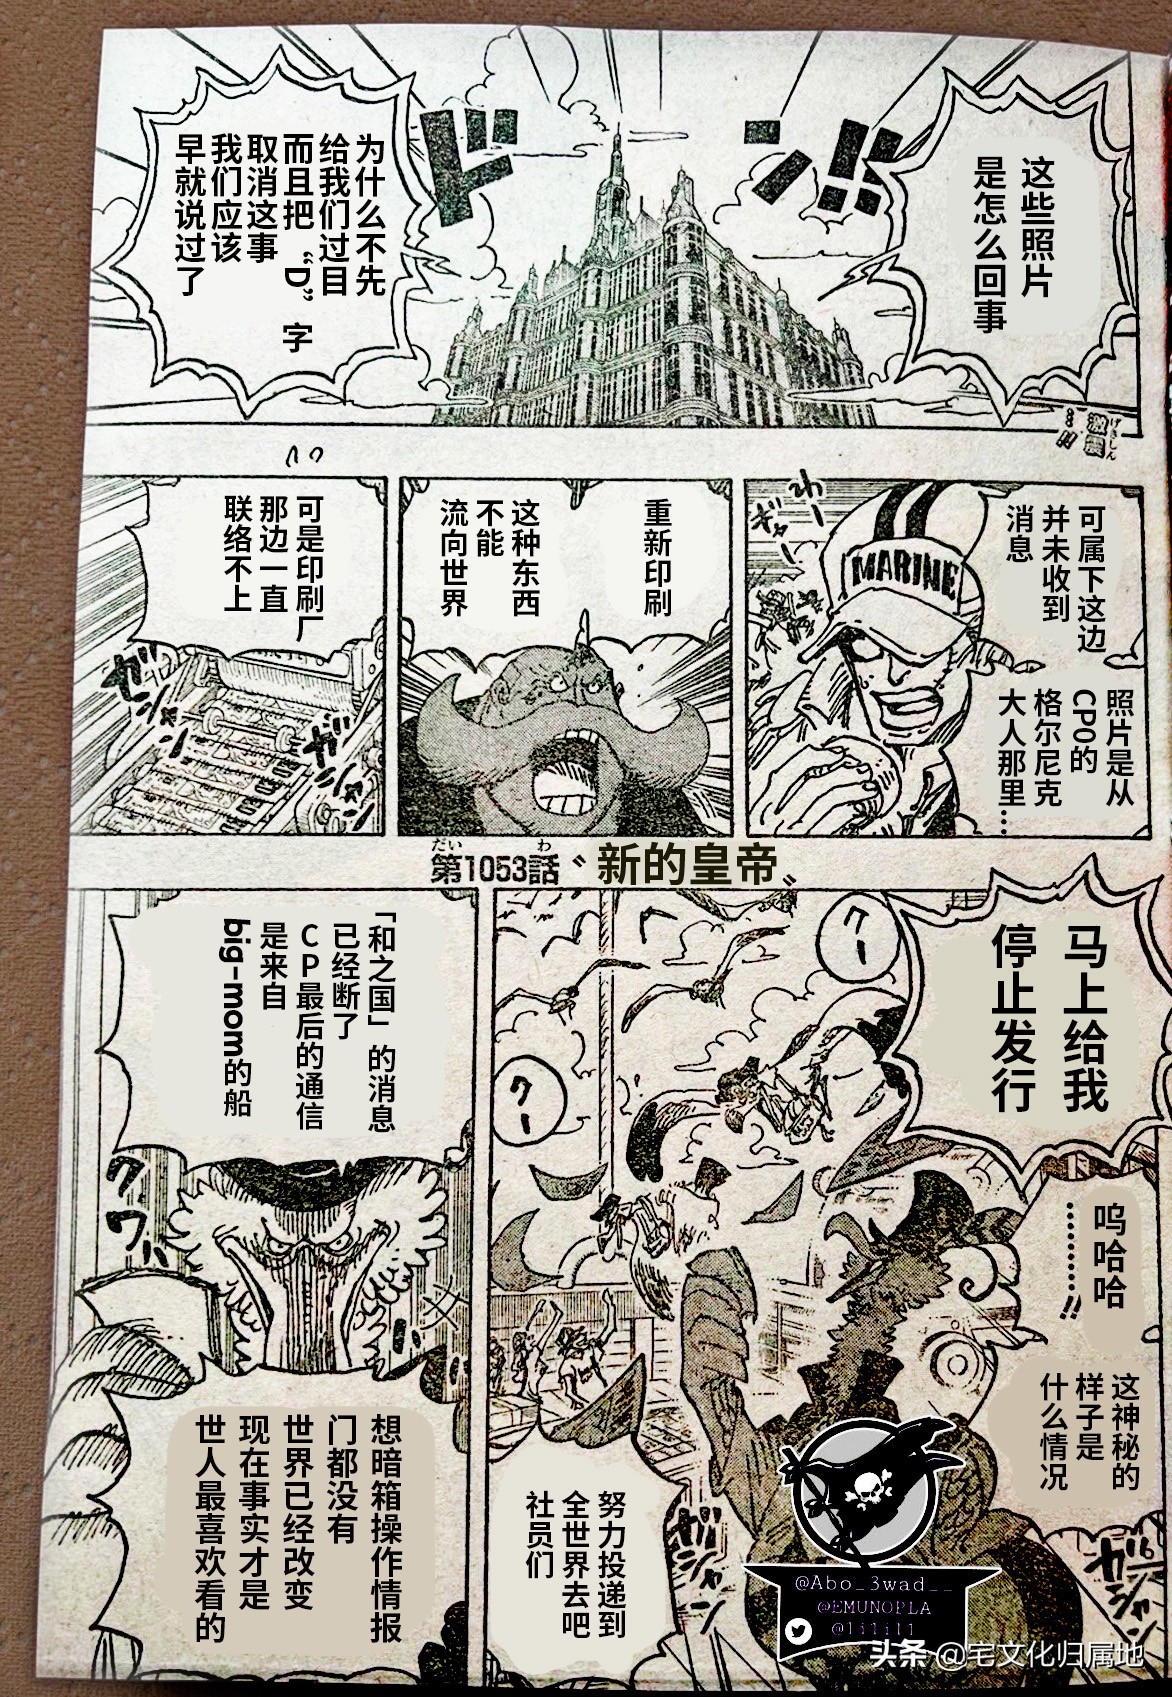 这些照片
是怎么回事
ドン!!
为什么不先
给我们过目
而且把“D”字
取消这事
我们应该
早就说过了
激震
げきしん
…!!
可属下这边
并未收到
消息
MARINE
照片是从
CP0的
格尔尼克
大人那里…
重新印刷
这种东西
不能
流向世界
可是印刷厂
那边一直
联络不上
だい
わ
第1053話〝新的皇帝〟
马上给我
停止发行
クー
クー
呜哈哈
………!!
这神秘的
样子是
什么情况
努力投递到
全世界去吧
社员们
「和之国」的消息
已经断了
CP最后的通信
是来自
big-mom的船
クワハハ
想暗箱操作情报
门都没有
世界已经改变
现在事实才是
世人最喜欢看的
@Abo_3wad__
@EMUNOPLA
头条 @宅文化归属地